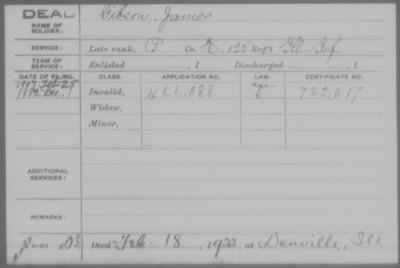 DEAL
NAME OF SOLDIER:
Gibson, James
SERVICE:
Late rank, P. Co K, 125 Reg't Ill. Inf.
TERM OF SERVICE:
Enlisted , 1 Discharged , 1
DATE OF FILING. CLASS. APPLICATION NO. LAW. CERTIFICATE NO.
1907 Feb 25
1882 Dec. 1 Invalid, 466,088 722617
Widow,
Minor,
ADDITIONAL SERVICES:
REMARKS:
Died Feb. 18, 1922, at Danville, Ill